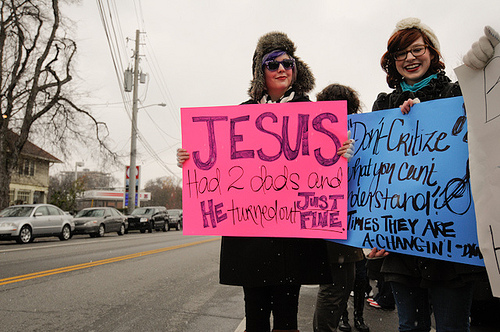 JESUS
Had 2 dads and
HE turned out JUST
FINE.
"Don't Critize"
what you can't
understand"
TIMES THEY ARE
A-CHANGIN'!